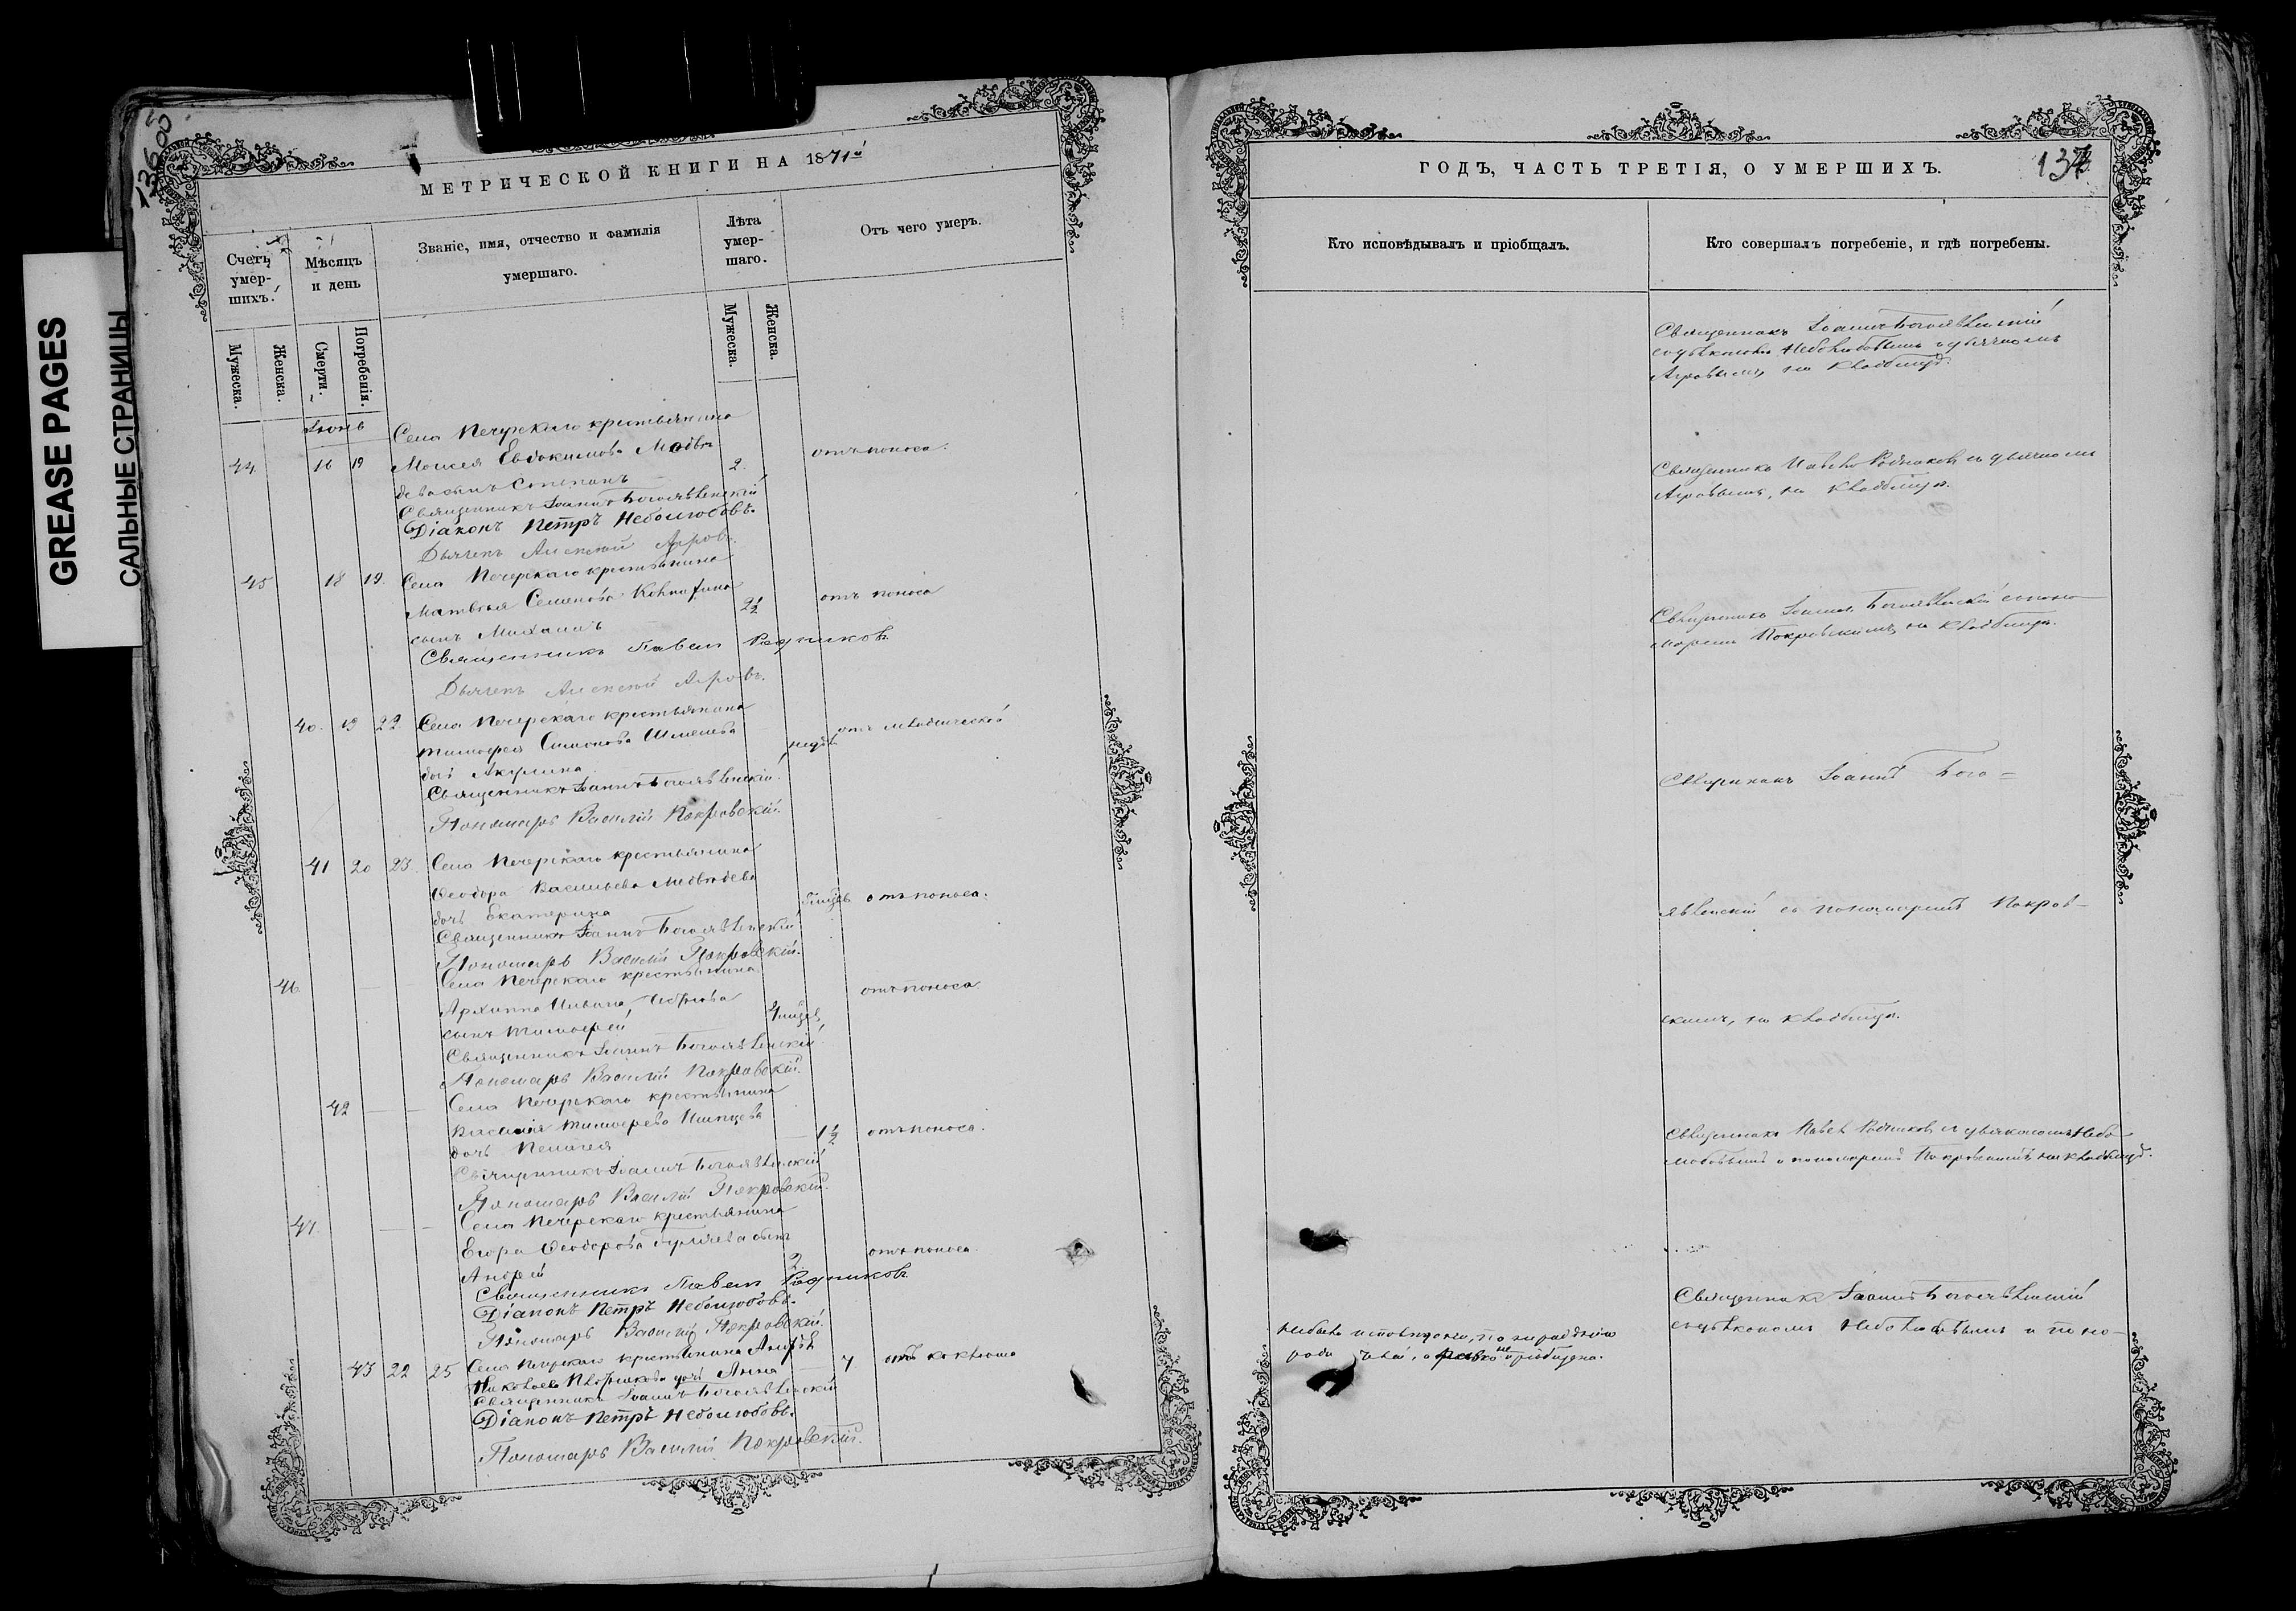 GREASE PAGES
САЛЬНЫЕ СТРАНИЦЫ
МЕТРИЧЕСКОЙ КНИГИ НА 1871й
Счетъ умер-шихъ.
Мѣсяцъ и день
Званіе, имя, отчество и фамилія
умершаго.
Лѣта умер-шаго.
Отъ чего умеръ.
Мужеска.
Женска.
Смерти.
Погребенія.
Мужеска.
Женска.
Іюнь
Села Печерскаго крестьянина
44 16 19 Моисея Евдокимова Медвѣ- 2. отъ поноса.
дева сынъ Степанъ
Священникъ Іоаннъ Богоявленскій
Діаконъ Петръ Неболюбовъ.
Дьячекъ Алексѣй Агровъ.
45 18 19. Села Печерскаго крестьянина
Матвѣя Семенова 2½ отъ поноса
сынъ Михаилъ
Священникъ Павелъ Родниковъ
Дьячекъ Алексѣй Агровъ.
40. 19 22 Села Печерскаго крестьянина
Тимофея Симонова отъ младенческой
дочь Акулина
Священникъ Іоаннъ Богоявленскій.
Пономарь Василій Покровскій.
41 20 23. Села Печерскаго крестьянина
Ѳеодора Васильева Медвѣдева
дочь Екатерина отъ поноса.
Священникъ Іоаннъ Богоявленскій
Пономарь Василій Покровскій.
46 — — Села Печерскаго крестьянина
Архиппа отъ поноса
сынъ Тимофей
Священникъ Іоаннъ Богоявленскій
Пономарь Василій Покровскій.
42 — — Села Печерскаго крестьянина
Василія Тимофеева 1½ отъ поноса.
дочь Пелагея
Священникъ Іоаннъ Богоявленскій
Пономарь Василій Покровскій.
47. — — Села Печерскаго крестьянина
Егора Ѳеодорова сынъ
Андрей 2. отъ поноса.
Священникъ Павелъ Родниковъ
Діаконъ Петръ Неболюбовъ.
Пономарь Василій Покровскій.
43 22 25 Села Печерскаго крестьянина Андрѣя
Николаева дочь Анна 7. отъ коклюша
Священникъ Іоаннъ Богоявленскій
Діаконъ Петръ Неболюбовъ.
Пономарь Василій Покровскій.
ГОДЪ, ЧАСТЬ ТРЕТІЯ, О УМЕРШИХЪ.
137
Кто исповѣдывалъ и пріобщалъ.
Кто совершалъ погребеніе, и гдѣ погребены.
Священникъ Іоаннъ Богоявленскій
съ діакономъ Неболюбовымъ и дьячкомъ
Агровымъ, на кладбищѣ.
Священникъ Павелъ Родниковъ съ дьячкомъ
Агровымъ, на кладбищѣ.
Священникъ Іоаннъ Богоявленскій съ поно-
маремъ Покровскимъ, на кладбищѣ.
Священникъ Іоаннъ Бого=
явленскій съ пономаремъ Покров-
скимъ, на кладбищѣ.
Священникъ Павелъ Родниковъ съ діакономъ Небо-
любовымъ и пономаремъ Покровскимъ на кладбищѣ.
Священникъ Іоаннъ Богоявленскій
съ діакономъ Неболюбовымъ и поно-
не была исповѣдана, по нерадѣнію